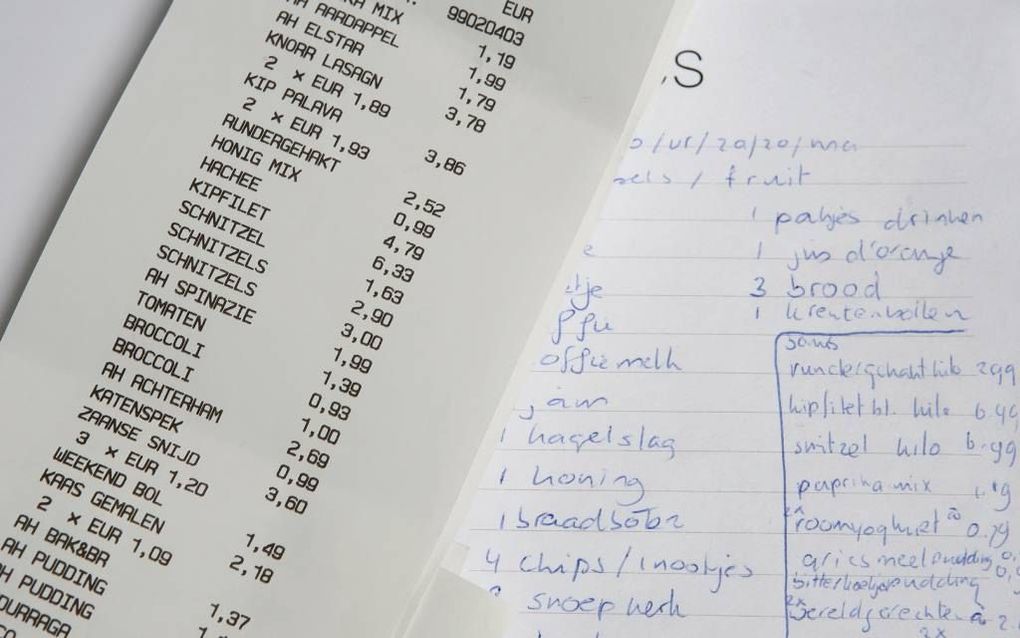 EUR
MIX 99020403
AARDAPPEL 1,19
AH ELSTAR 1,99
KNORR LASAGN 1,79
2 × EUR 1,89 3,78
KIP PALAVA
2 × EUR 1,93 3,86
RUNDERGEHAKT 2,52
HONIG MIX 0,99
HACHEE 4,79
KIPFILET 6,33
SCHNITZEL 1,63
SCHNITZELS 2,90
SCHNITZELS 3,00
AH SPINAZIE 1,99
TOMATEN 1,39
BROCCOLI 0,93
BROCCOLI 1,00
AH ACHTERHAM 2,69
KATENSPEK 0,99
ZAANSE SNIJD
3 × EUR 1,20 3,60
WEEKEND BOL 1,49
KAAS GEMALEN
2 × EUR 1,09 2,18
AH BAK&BR 1,37
AH PUDDING
AH PUDDING
S
/ur/20/20/ma
sels / fruit
e
tje
ffie
offiemelk
jam
1 hagelslag
1 honing
1 braadboter
4 chips/nootjes
snoep werk
1 pakjes drinken
1 jus d'orange
3 brood
1 krentenbollen
rundergehakt kilo 299
kipfilet bl. kilo 6.49
snitzel kilo 6.99
paprika mix
2x roomyoghurt a 0.79
griesmeelpudding 0,
bitterkoekjespudding 0,
2x wereldgerechten a 2.
2x